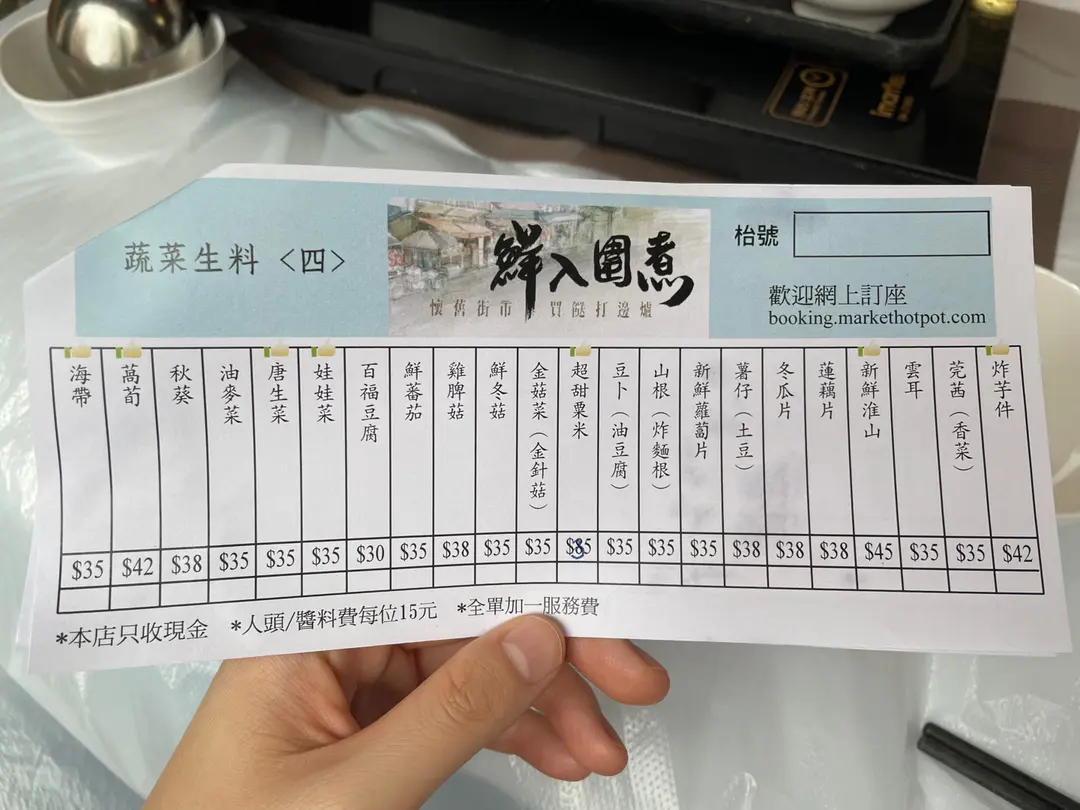 蔬菜生料〈四〉
鮮入圍煮
懷舊街市 買餸打邊爐
枱號
歡迎網上訂座
booking.markethotpot.com
海帶 $35
萵荀 $42
秋葵 $38
油麥菜 $35
唐生菜 $35
娃娃菜 $35
百福豆腐 $30
鮮蕃茄 $35
雞脾菇 $38
鮮冬菇 $35
金菇菜（金針菇） $35
超甜粟米
豆卜（油豆腐） $35
山根（炸麵根） $35
新鮮蘿蔔片 $35
薯仔（土豆） $38
冬瓜片 $38
蓮藕片 $38
新鮮淮山 $45
雲耳 $35
莞茜（香菜） $35
炸芋件 $42
*本店只收現金 *人頭/醬料費每位15元 *全單加一服務費